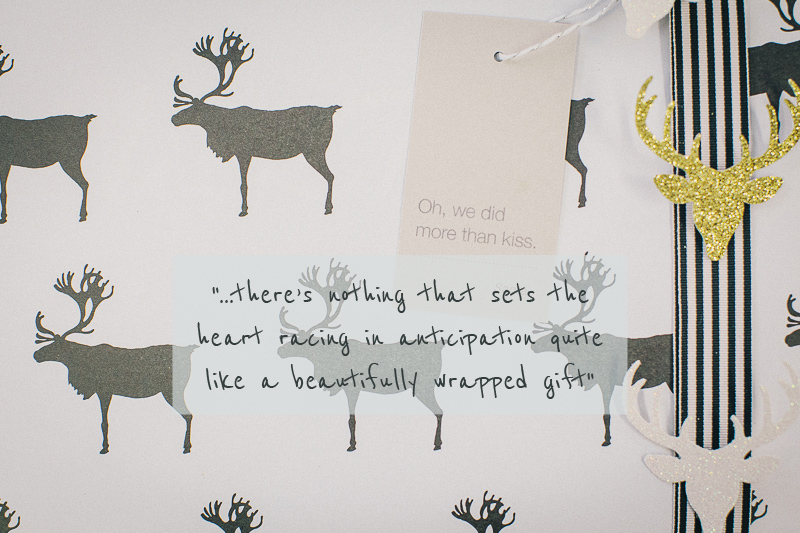 Oh, we did
more than kiss.
"...there's nothing that sets the
heart racing in anticipation quite
like a beautifully wrapped gift"